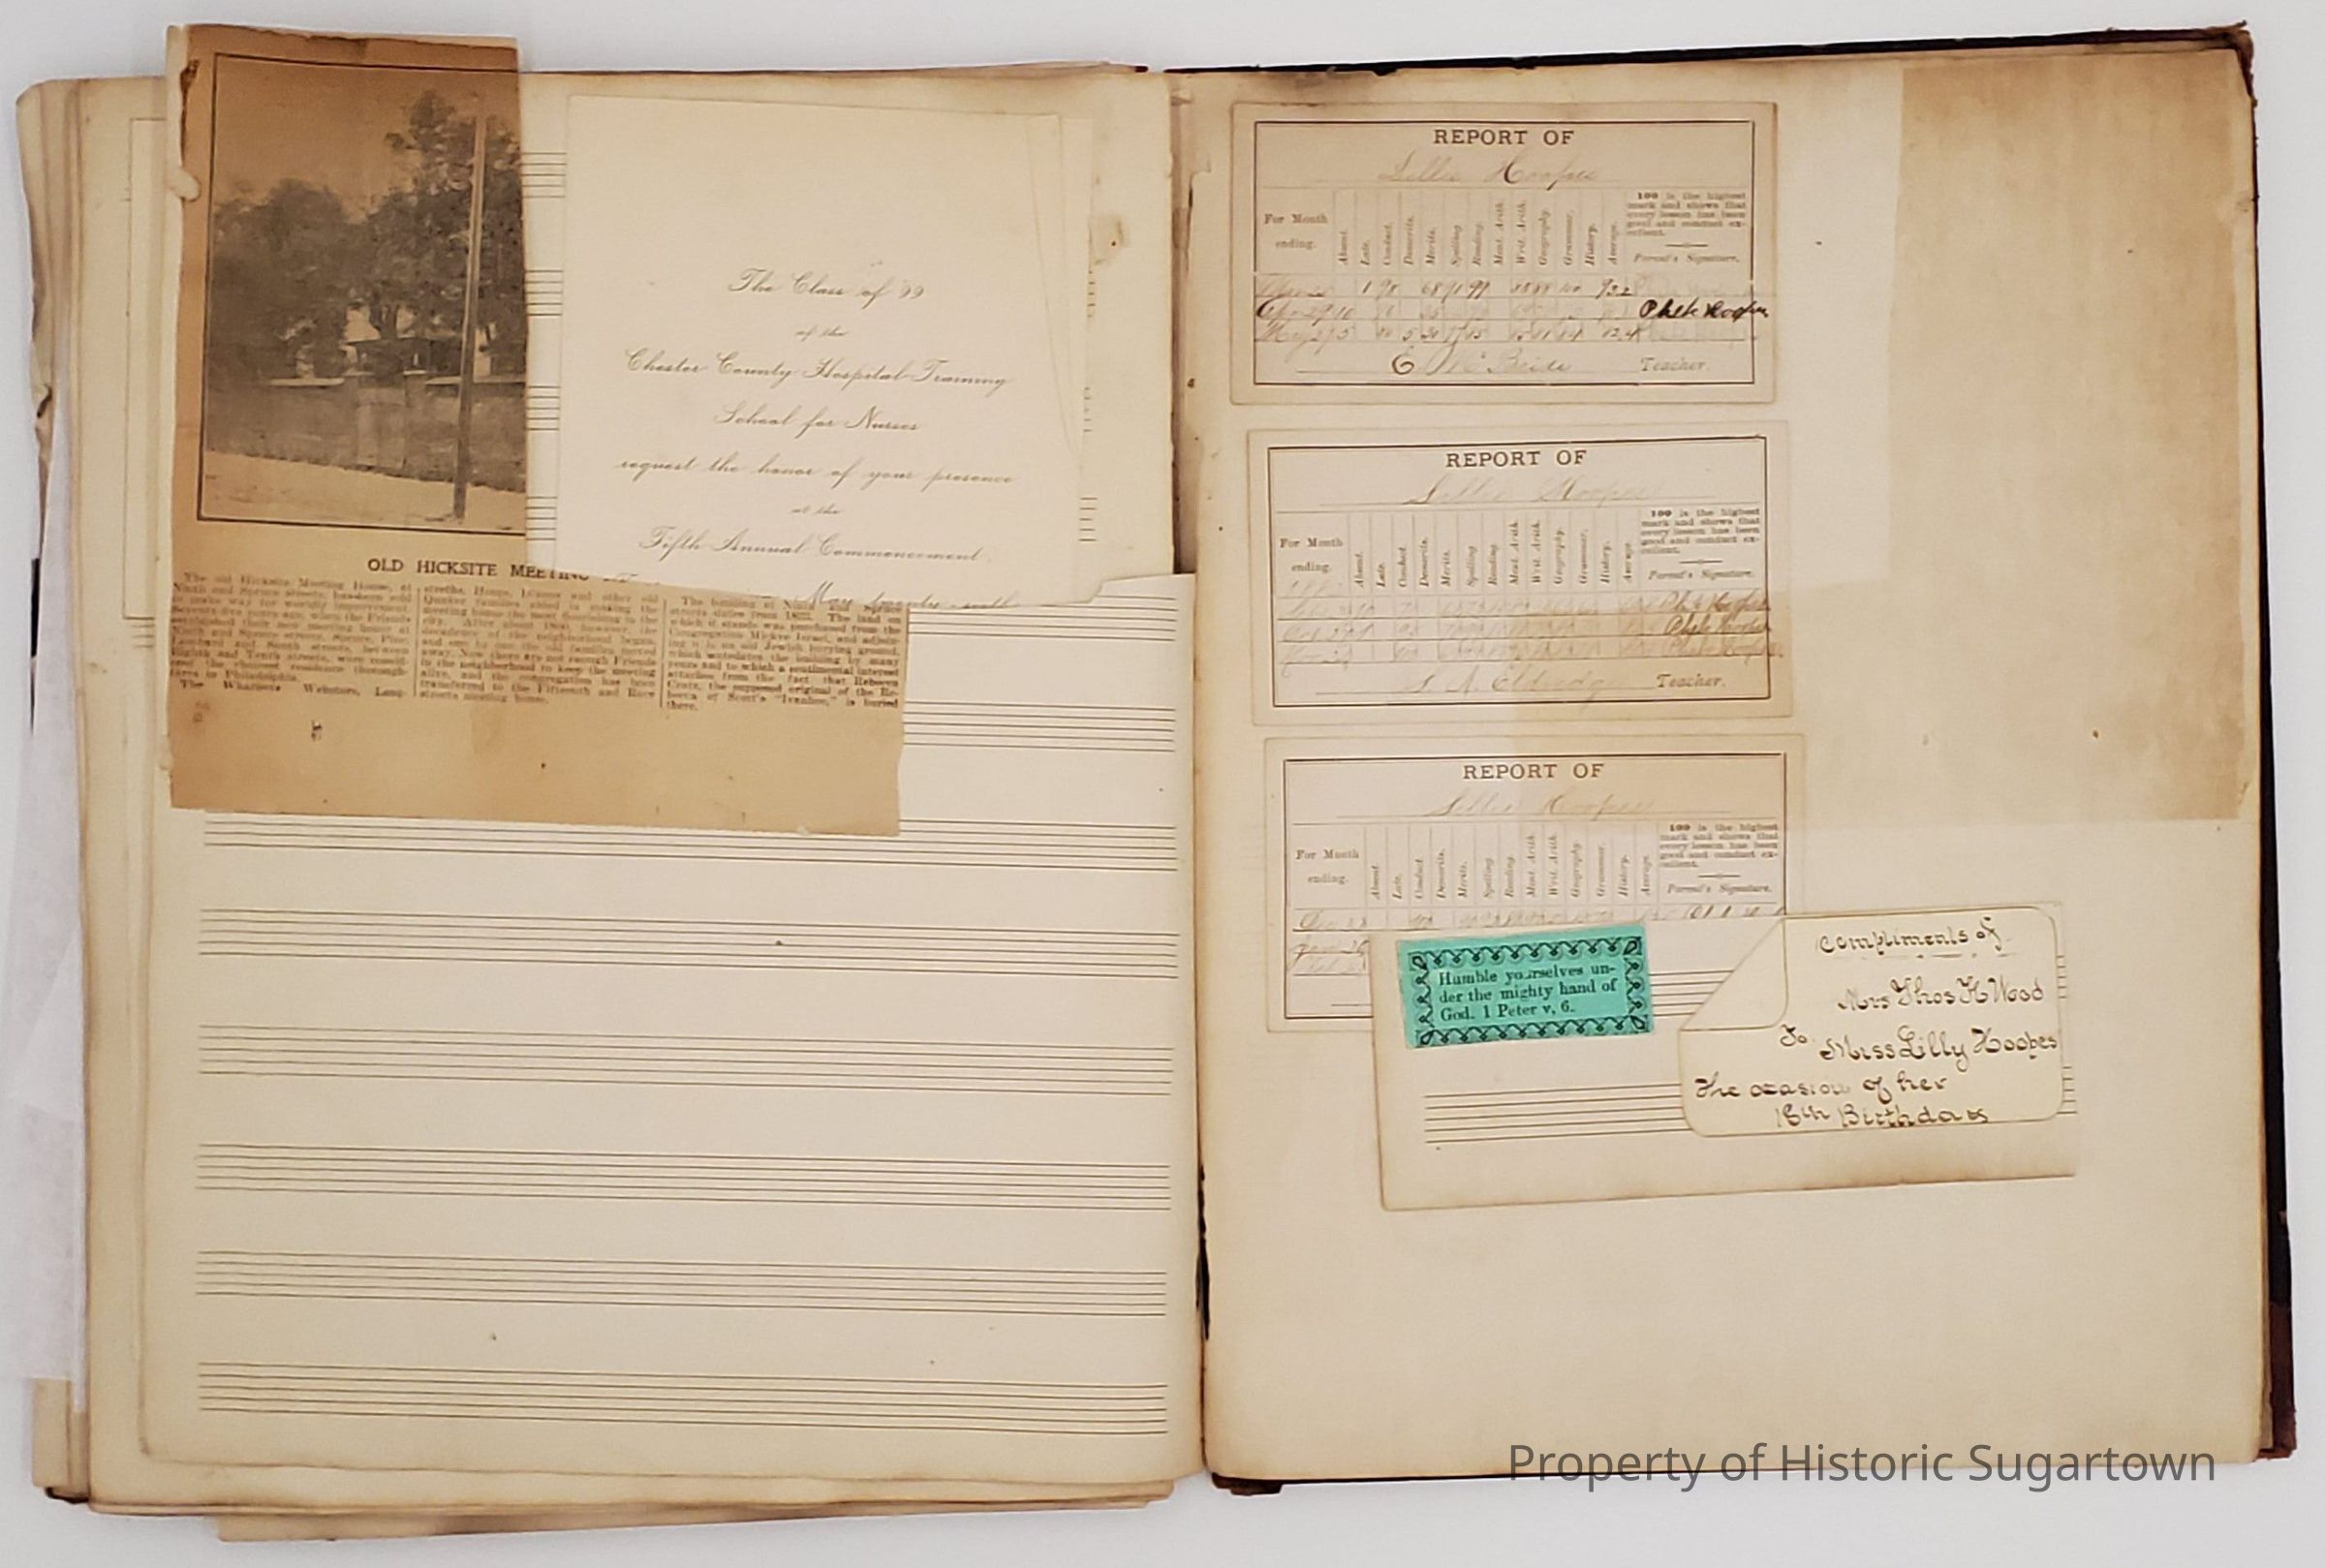 OLD HICKSITE MEETING
The old Hicksite Meeting House, at
Ninth and Spruce streets, has been sold
to make way for worldly improvement.
Seventy-five years ago, when the Friends
established their meeting house at
Ninth and Spruce streets, Spruce, Pine,
Lombard and South streets, between
Eighth and Tenth streets, were consid-
ered the choicest residence thorough-
fares in Philadelphia.
The Whartons, Websters, Long-
streths, Hoops, and other old
Quaker families aided in making the
meeting house the most flourishing in the
city. After about 1860, however, the
decadence of the neighborhood began,
and one by one the old families moved
away. Now there are not enough Friends
in the neighborhood to keep the meeting
alive, and the congregation has been
transferred to the Fifteenth and Race
streets meeting house.
The building at Ninth and Spruce
streets dates from 1833. The land on
which it stands was purchased from the
Congregation Mickve Israel, and adjoin-
ing it is an old Jewish burying ground,
which antedates the building by many
years and to which a sentimental interest
attaches from the fact that Rebecca
Gratz, the supposed original of the Re-
becca of Scott's "Ivanhoe," is buried
there.
The Class of '99
of the
Chester County Hospital Training
School for Nurses
request the honor of your presence
at the
Fifth Annual Commencement,
May twenty-sixth
REPORT OF
Lillie Hoopes
For Month
ending.
Absent.
Late.
Conduct.
Demerits.
Merits.
Spelling
Reading.
Ment. Arith.
Writ. Arith.
Geography.
Grammar.
History.
Average.
100 is the highest
mark and shows that
every lesson has been
good and conduct ex-
cellent.
Parent's Signature.
Phebe Hoopes
E McBride Teacher.
REPORT OF
Lillie Hoopes
For Month
ending.
Absent.
Late.
Conduct.
Demerits.
Merits.
Spelling
Reading.
Ment. Arith.
Writ. Arith.
Geography.
Grammar.
History.
Average.
100 is the highest
mark and shows that
every lesson has been
good and conduct ex-
cellent.
Parent's Signature.
Phebe Hoopes
Phebe Hoopes
Phebe Hoopes
S. A. Eldridge Teacher.
REPORT OF
Lillie Hoopes
For Month
ending.
Absent.
Late.
Conduct.
Demerits.
Merits.
Spelling
Reading.
Ment. Arith.
Writ. Arith.
Geography.
Grammar.
History.
Average.
100 is the highest
mark and shows that
every lesson has been
good and conduct ex-
cellent.
Parent's Signature.
Humble yourselves un-
der the mighty hand of
God. 1 Peter v, 6.
Compliments of
Mrs Thos H Wood
To Miss Lilly Hoopes
The ocasion of her
18th Birthday
Property of Historic Sugartown